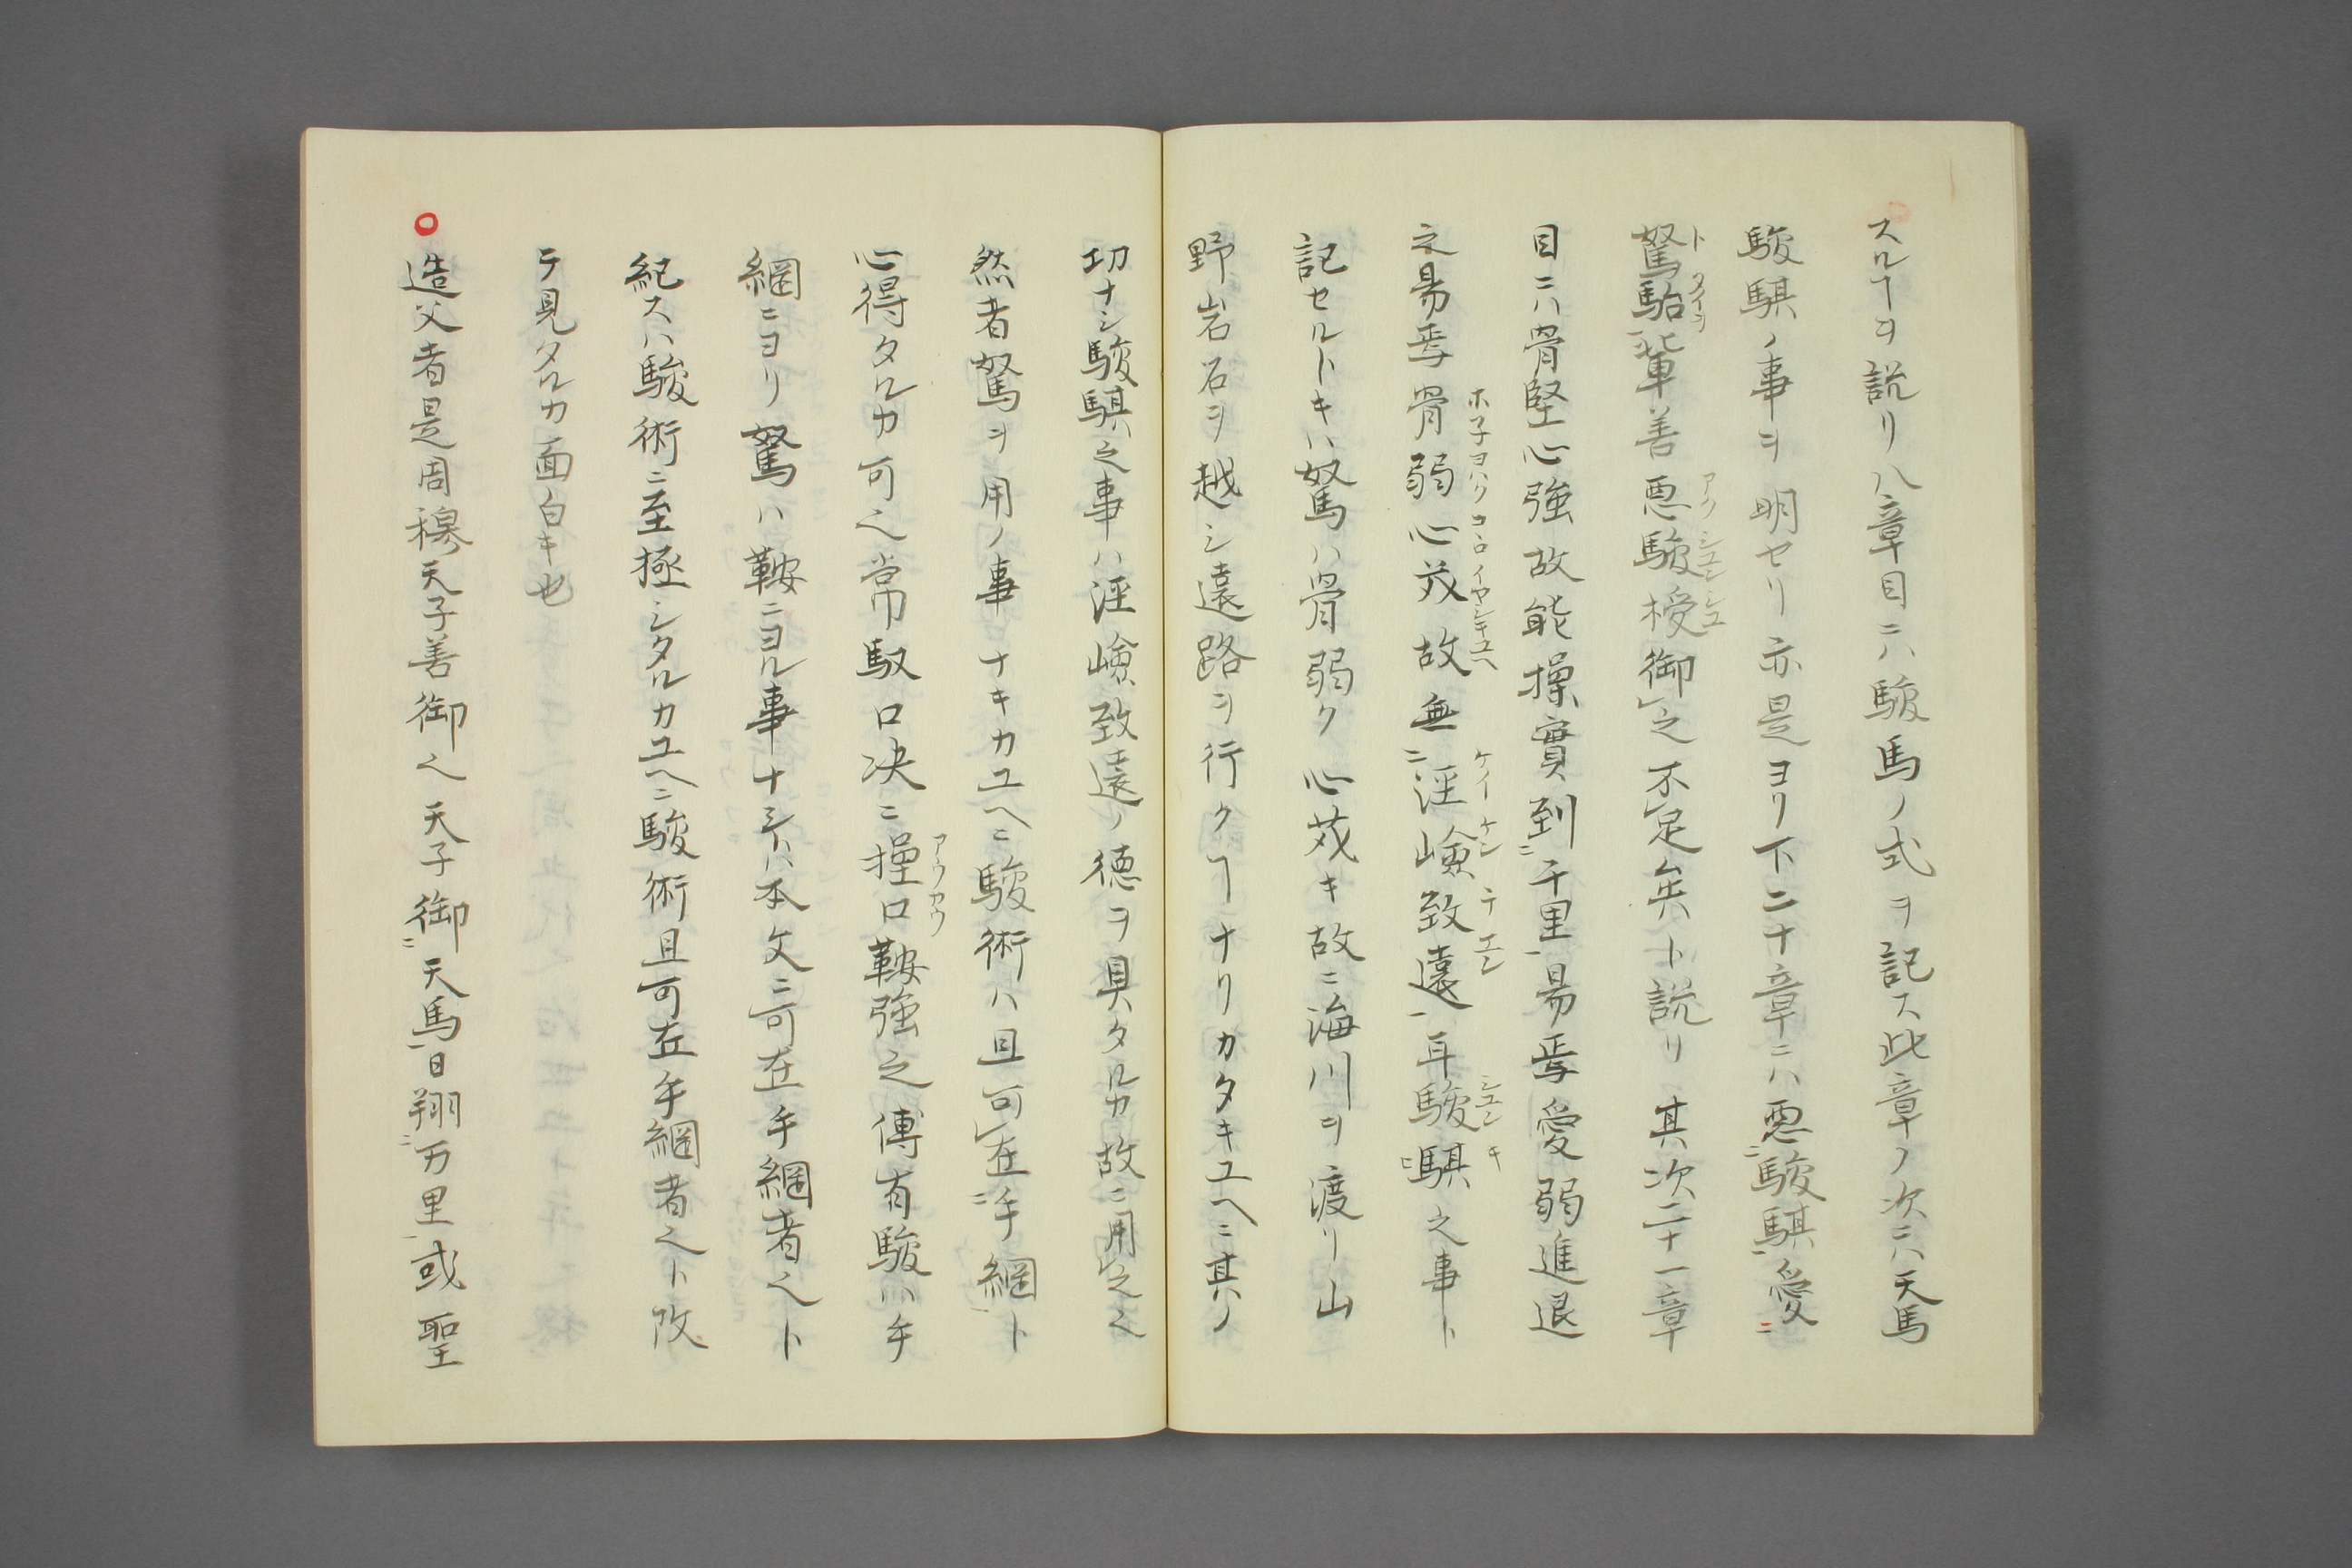 スルヿヲ説リ八章目ニハ駿馬ノ式ヲ記ス此章ノ次ニハ天馬
駿騏ノ事ヲ明セリ亦是ヨリ下二十章ニハ悪駿騏愛
駑駘輩善悪駿授御之不足矣ト説リ其次二十一章
目ニハ骨堅心強故能操實到千里易焉愛弱進退
之易焉骨弱心苂故無淫嶮致遠耳駿騏之事ト
記セルトキハ駑ハ骨弱ク心苂キ故ニ海川ヲ渡リ山
野岩石ヲ越シ遠路ヲ行クヿナリカタキユヘニ其ノ
功ナシ駿騏之事ハ淫嶮致遠ノ徳ヲ具タルカ故ニ用之〱
然者駑ヲ用ノ事ナキカユヘニ駿術ハ且可在手綱ト
心得タルカ可〱常馭口决ニ握口鞍強之傳有駿ハ手
綱ニヨリ駑ハ鞍ニヨル事ナシトハ本文ニ可在手綱者〱ト
紀スハ駿術ニ至極シタルカユヘニ駿術且可在手綱者〱ト改
テ見タルカ面白キ也
○造父者是周穆天子善御〱天子御天馬日翔万里或聖